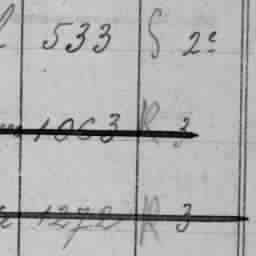 533 S 2e
1063 R 3
1272 R 3